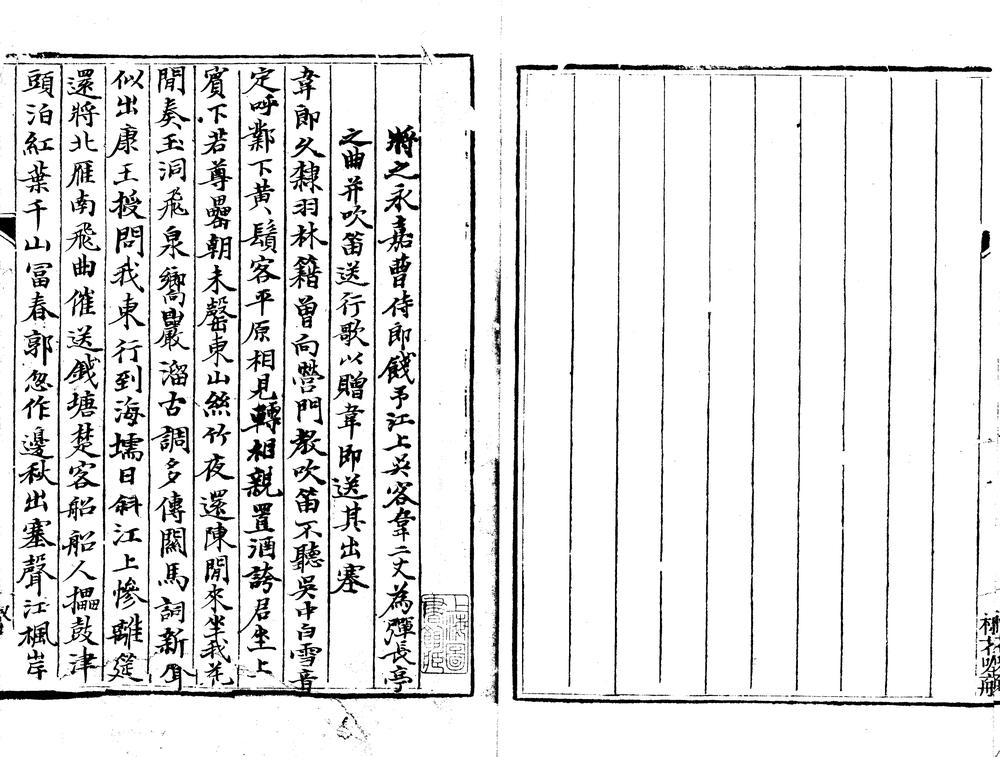 將之永嘉曹侍郎餞予江上吳客韋二丈為彈長亭
之曲并吹笛送行歌以贈韋郎送其出塞
韋郎久隸羽林籍曾向營門教吹笛不聽吳中白雪音
定呼鄴下黃鬚客平原相見轉相親置酒誇君坐上
賓下若尊罍朝未罄東山絲竹夜還陳閒來坐我花
間奏玉洞飛泉嚮巖溜古調多傳關馬詞新聲
似出康王授問我東行到海壖日斜江上慘離筵
還將北雁南飛曲催送錢塘楚客船船人搵鼓津
頭泊紅葉千山富春郭忽作邊秋出塞聲江楓岸
上海圖書館藏